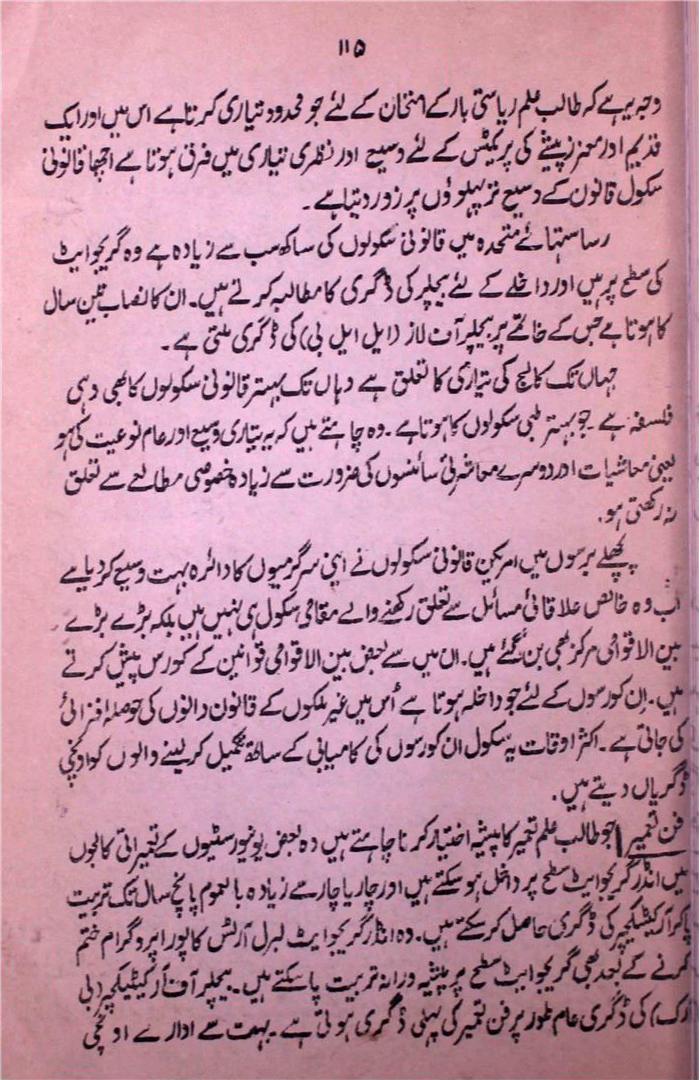 ۱۱۵
وجہ یہ ہے کہ طالب علم ریاستی بار کے امتحان کے لئے جو محدود تیاری کرتا ہے اس میں اور ایک
قدیم اور معزز پیشے کی پریکٹس کے لئے وسیع اور نظری تیاری میں فرق ہوتا ہے اچھا قانونی
سکول قانون کے وسیع تر پہلوؤں پر زور دیتا ہے ۔
ریاستہائے متحدہ میں قانونی سکولوں کی ساکھ سب سے زیادہ ہے وہ گریجوایٹ
کی سطح پر ہیں اور داخلے کے لئے بیچلر کی ڈگری کا مطالبہ کرتے ہیں۔ ان کا نصاب تین سال
کا ہوتا ہے جس کے خاتمے پر بیچلر آف لاز (ایل ایل بی) کی ڈگری ملتی ہے ۔
جہاں تک کالج کی تیاری کا تعلق ہے وہاں تک بہتر قانونی سکولوں کا بھی وہی
فلسفہ ہے ۔ جو بہتر طبی سکولوں کا ہوتا ہے ۔ وہ چاہتے ہیں کہ یہ تیاری وسیع اور عام نوعیت کی ہو
یعنی معاشیات اور دوسرے معاشرتی سائنسوں کی ضرورت سے زیادہ خصوصی مطالعے سے تعلق
نہ رکھتی ہو۔
پچھلے برسوں میں امریکن قانونی سکولوں نے اپنی سرگرمیوں کا دائرہ بہت وسیع کر دیا ہے
اب وہ خالص علاقائی مسائل سے تعلق رکھنے والے مقامی سکول ہی نہیں ہیں بلکہ بڑے بڑے
بین الاقوامی مرکز بھی بن گئے ہیں۔ ان میں سے بعض بین الاقوامی قوانین کے کورس پیش کرتے
ہیں۔ ان کورسوں کے لئے جو داخلہ ہوتا ہے اُس میں غیر ملکوں کے قانون دانوں کی حوصلہ افزائی
کی جاتی ہے ۔ اکثر اوقات یہ سکول ان کورسوں کی کامیابی کے ساتھ تکمیل کر لینے والوں کو اونچی
ڈگریاں دیتے ہیں ۔
فن تعمیر | جو طالب علم تعمیر کا پیشہ اختیار کرنا چاہتے ہیں وہ بعض یونیورسٹیوں کے تعمیراتی کالجوں
میں انڈر گریجوایٹ سطح پر داخل ہو سکتے ہیں اور چار یا چار سے زیادہ بالعموم پانچ سال تک تربیت
پا کر آرکیٹیکچر کی ڈگری حاصل کر سکتے ہیں۔ وہ انڈر گریجوایٹ لبرل آرٹس کا پورا پروگرام ختم
کرنے کے بعد بھی گریجوایٹ سطح پر پیشہ ورانہ تربیت پا سکتے ہیں ۔ بیچلر آف آرکیٹیکچر (بی
آرک) کی ڈگری عام طور پر فن تعمیر کی پہلی ڈگری ہوتی ہے ۔ بہت سے ادارے اونچی